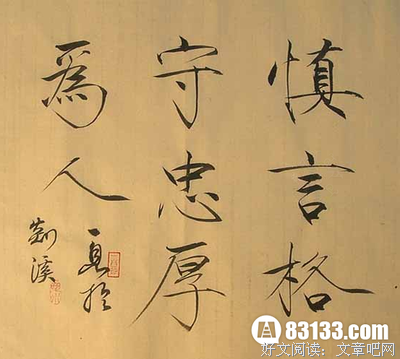 慎言格
守忠厚
爲人
於
溪
83133.com
好文阅读：文章吧网